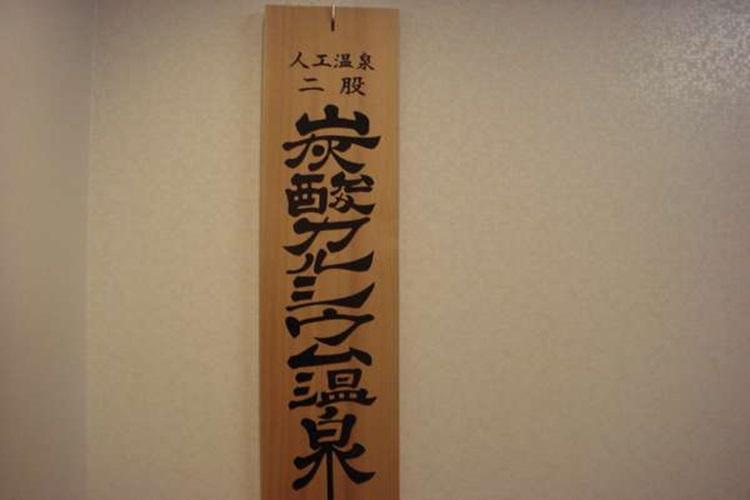 人工温泉
二股
炭酸カルシウム温泉